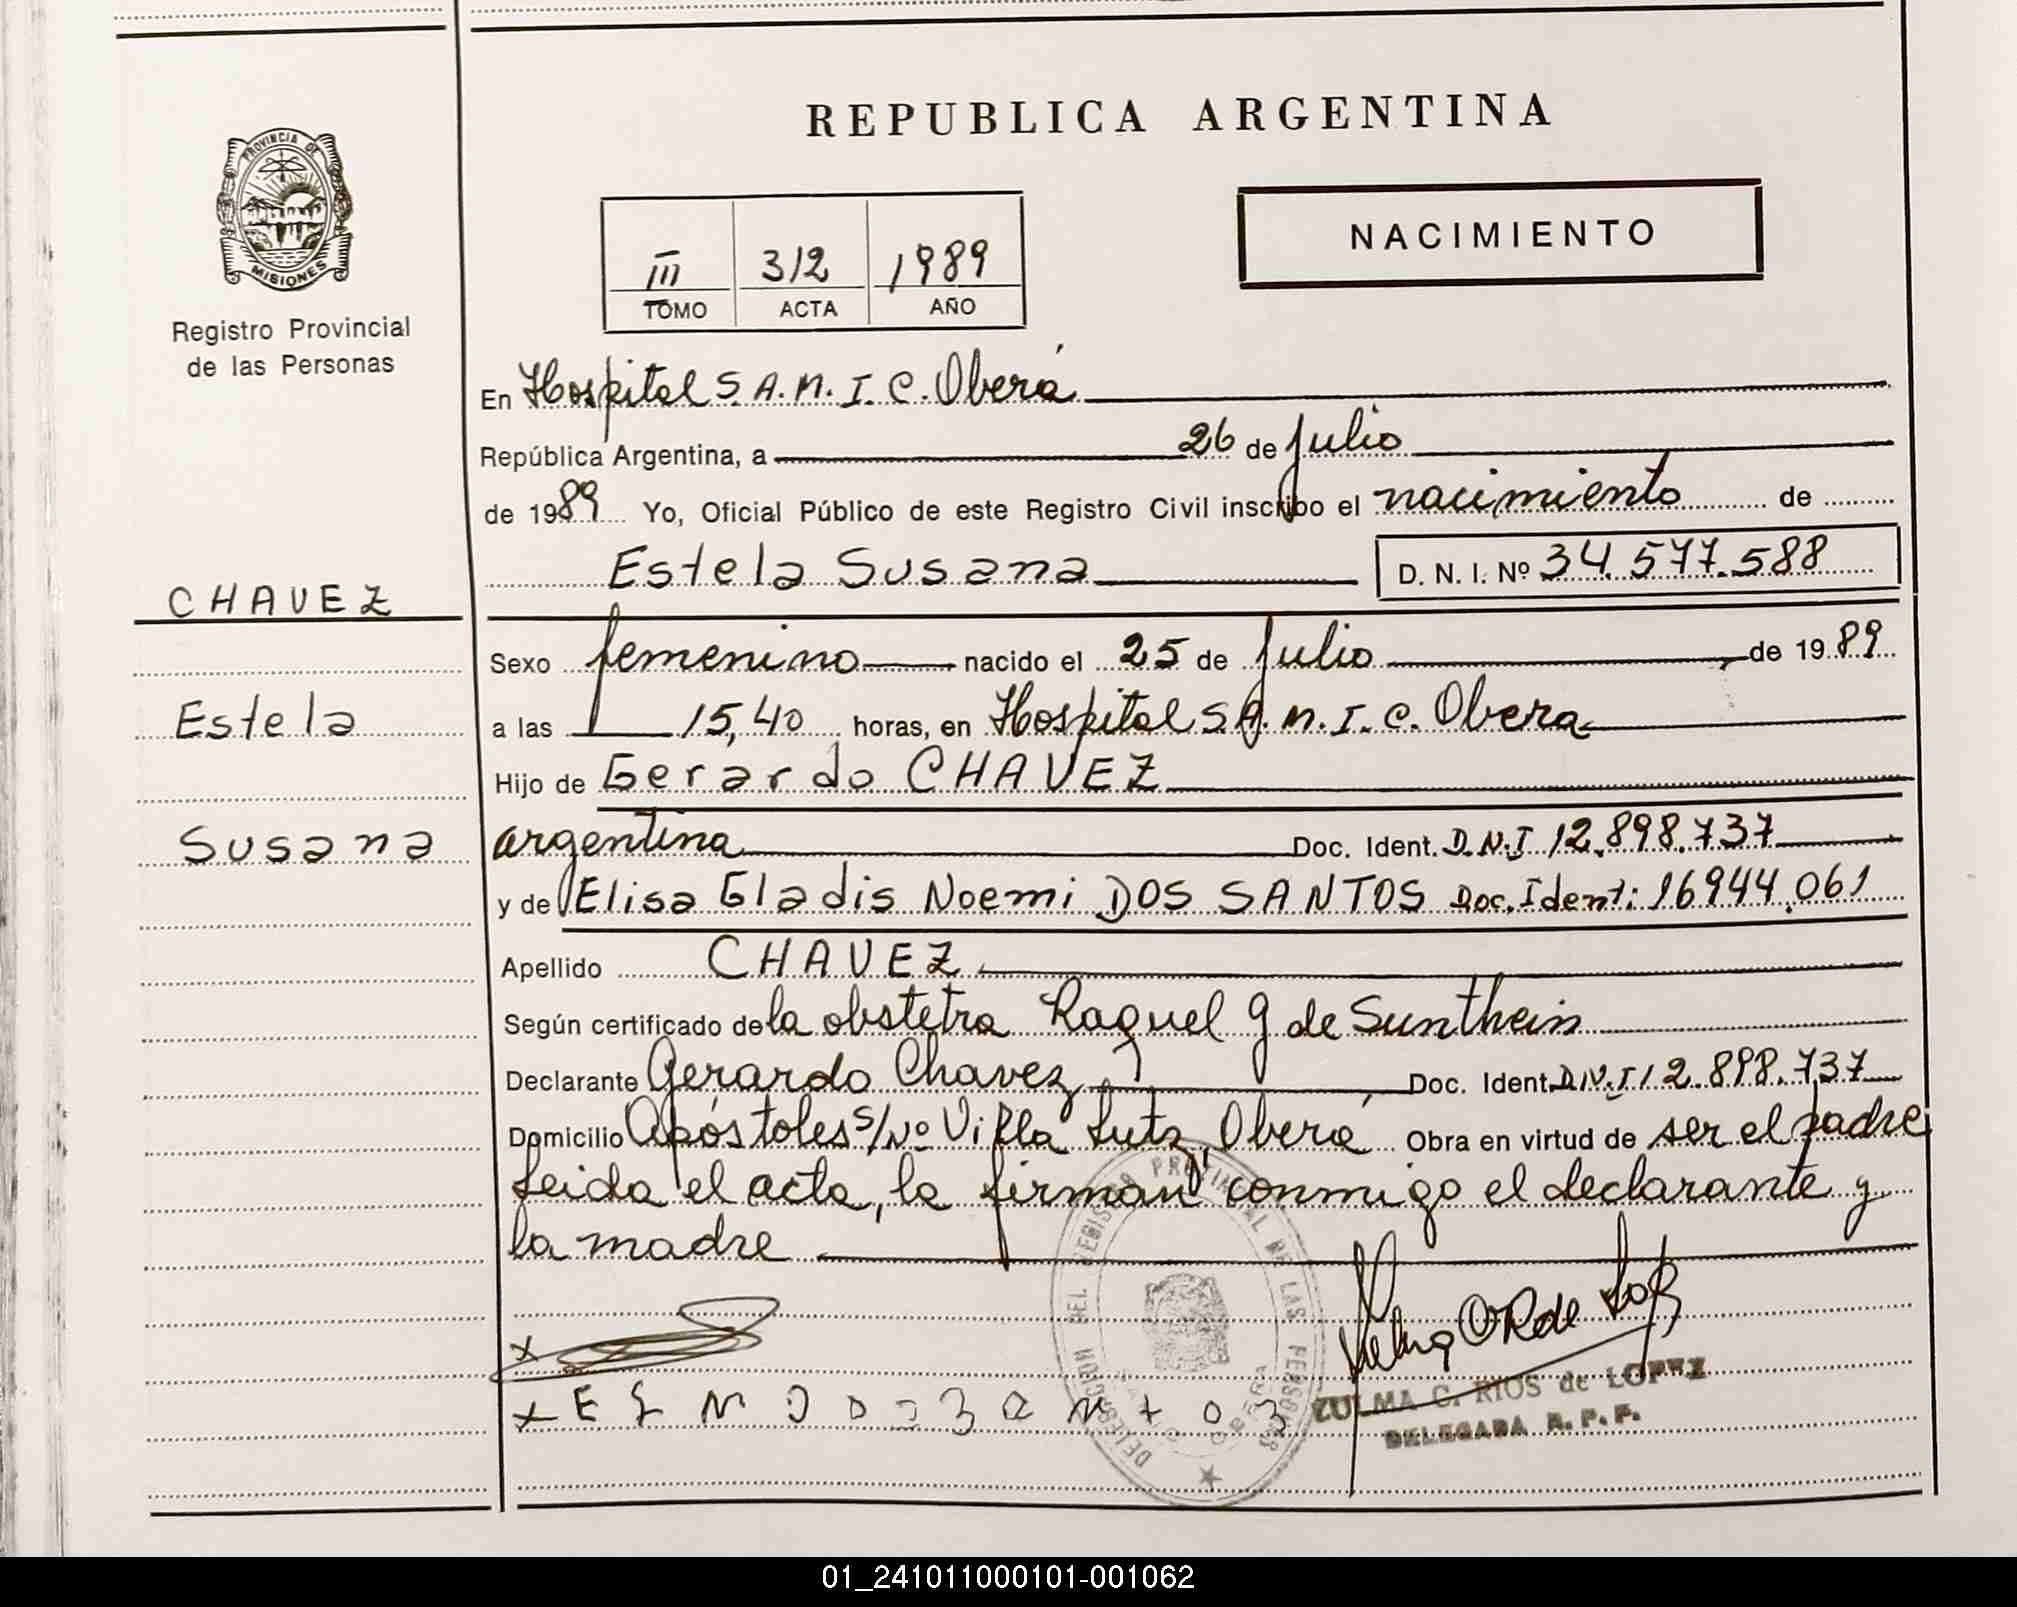 REPUBLICA ARGENTINA
PROVINCIA DE
MISIONES
Registro Provincial
de las Personas
III 312 1989
TOMO ACTA AÑO
NACIMIENTO
En Hospital S.A.M.I.C. Oberá
República Argentina, a 26 de Julio
de 1989 Yo, Oficial Público de este Registro Civil inscribo el nacimiento de
Estela Susana D. N. I. Nº 34.577.588
CHAVEZ
Estela
Susana
Sexo femenino nacido el 25 de Julio de 1989
a las 15,40 horas, en Hospital S.A.M.I.C. Obera
Hijo de Gerardo CHAVEZ
argentina Doc. Ident. D.N.I 12.898.737
y de Elisa Gladis Noemi DOS SANTOS Doc. Ident: 16944.061
Apellido CHAVEZ
Según certificado de la obstetra Raquel G de Sunthein
Declarante Gerardo Chavez Doc. Ident. D.N.I 12.898.737
Domicilio Apóstoles S/Nº Villa Lutz, Oberá Obra en virtud de ser el padre
Leida el acta, la firman conmigo el declarante y
la madre
DELEGACION DEL REGISTRO PROVINCIAL DE LAS PERSONAS
OBERA
ZULMA C. RIOS de LOPEZ
DELEGADA R. P. P.
01_241011000101-001062